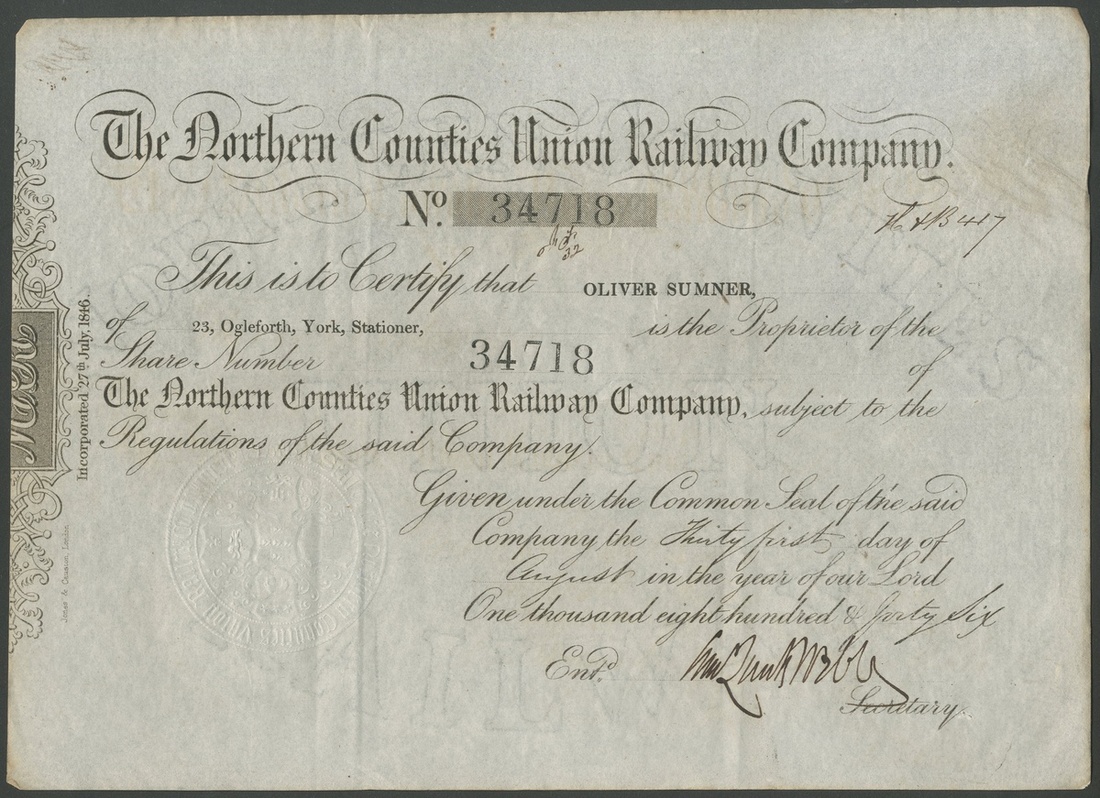 The Northern Counties Union Railway Company.
No. 34718
This is to Certify that OLIVER SUMNER,
of 23, Ogleforth, York, Stationer, is the Proprietor of the
Share Number 34718 of
The Northern Counties Union Railway Company, subject to the
Regulations of the said Company.
Given under the Common Seal of the said
Company the Thirty first day of
August in the year of our Lord
One thousand eight hundred & forty Six
Entd.
Secretary.
Incorporated 27th July, 1846.